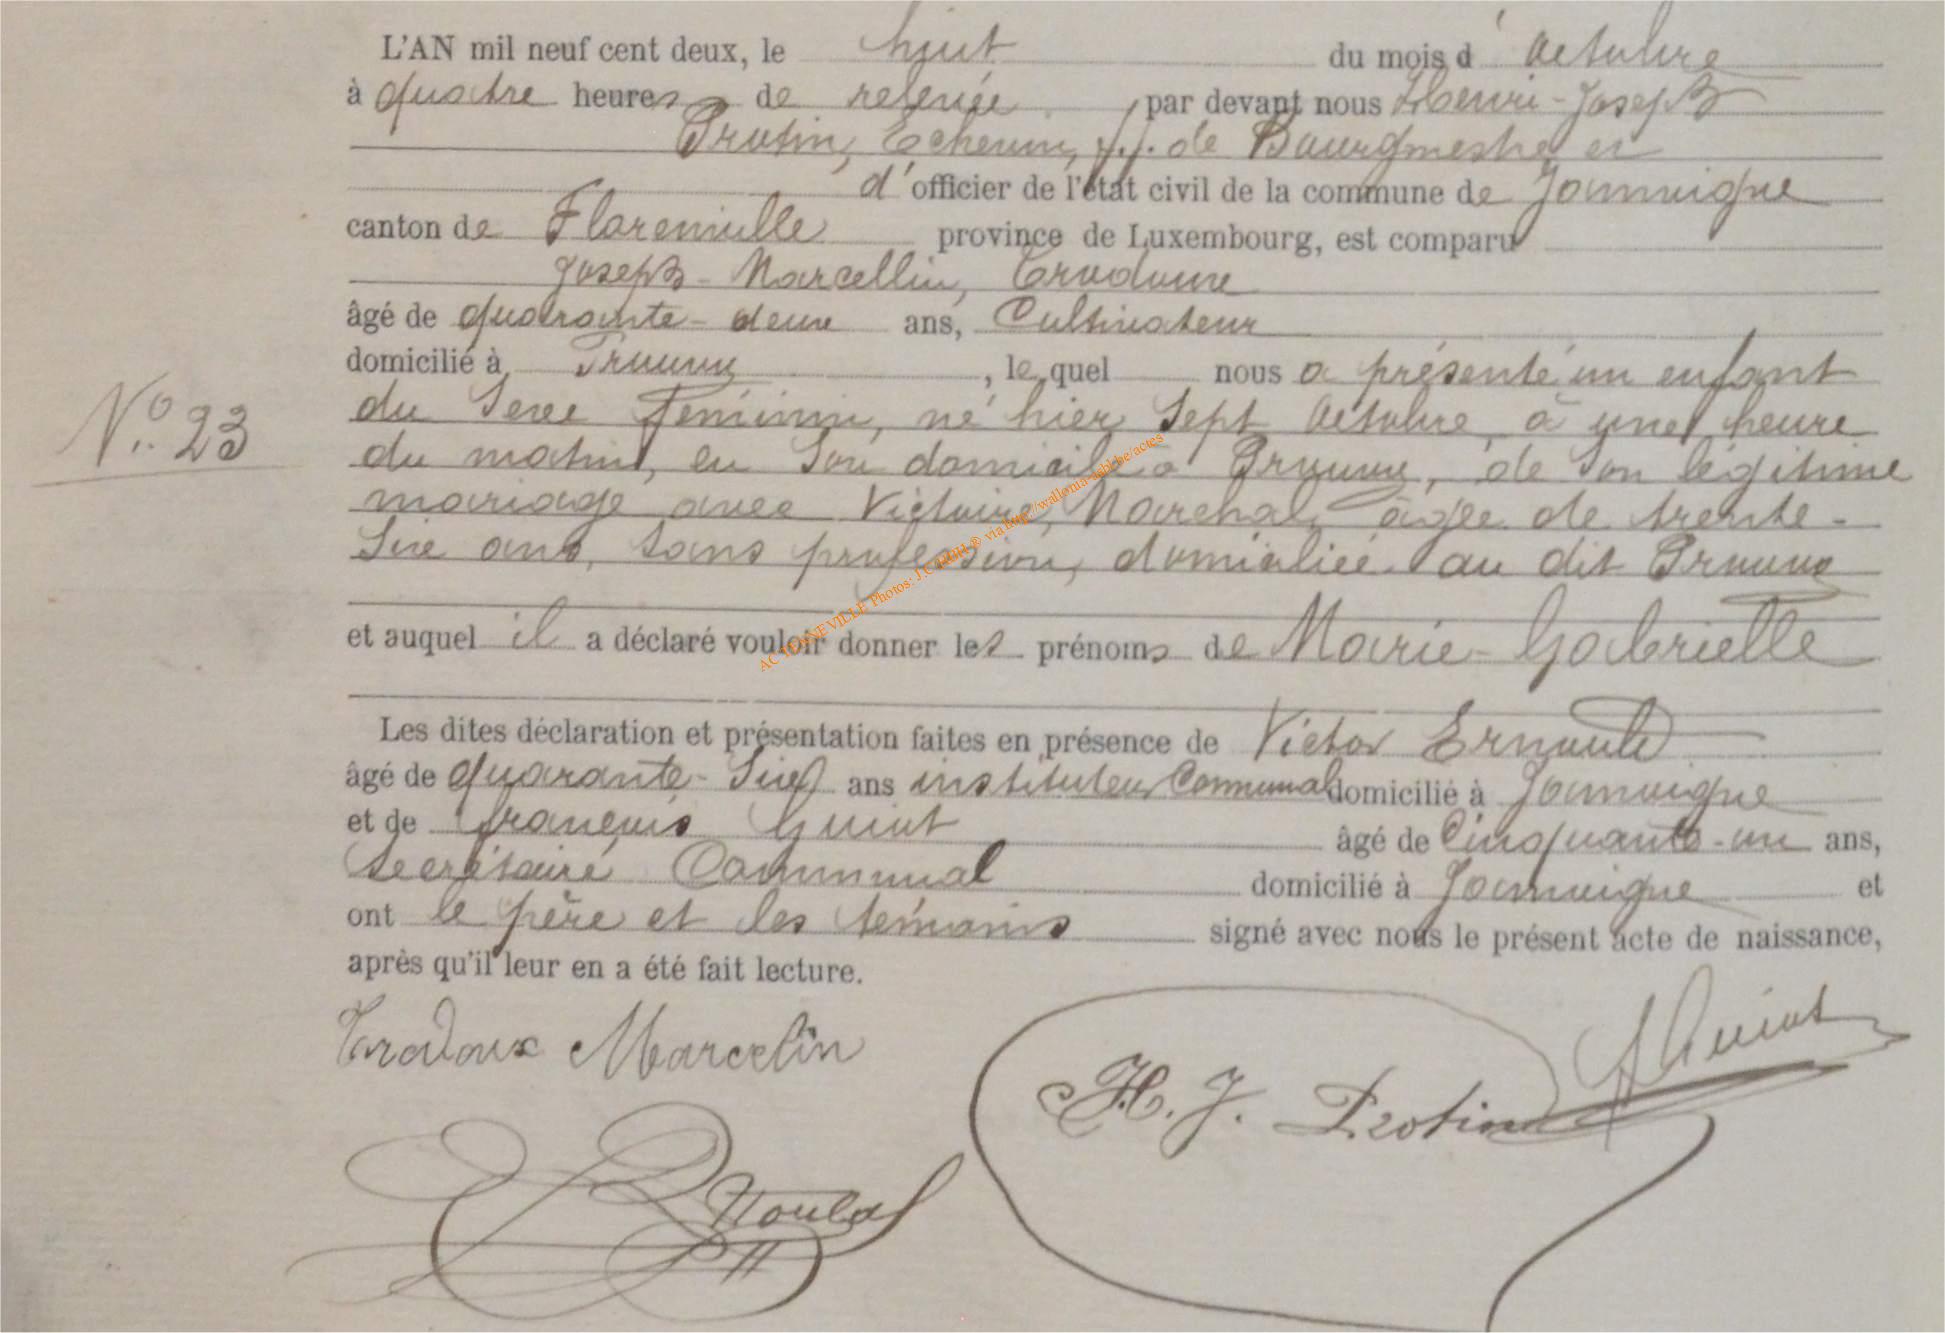 L'AN mil neuf cent deux, le huit du mois d'Octobre
à quatre heures de relevée, par devant nous Henri-Joseph
Protin, Echevin, f.f. de Bourgmestre et
d'officier de l'état civil de la commune de Jamoigne
canton de Florenville province de Luxembourg, est comparu
Joseph-Marcellin,
âgé de quarante-deux ans, Cultivateur
domicilié à Prouvy, lequel nous a présenté un enfant
N° 23
du sexe féminin, né hier sept Octobre, à une heure
du matin, en son domicile à Prouvy, de son légitime
mariage avec Victoire, Maréchal, âgée de trente-
six ans, sans profession, domiciliée au dit Prouvy
et auquel il a déclaré vouloir donner les prénoms de Marie-Gabrielle
Les dites déclaration et présentation faites en présence de Victor
âgé de quarante-six ans instituteur Communal domicilié à Jamoigne
et de François Guiot âgé de Cinquante-un ans,
secrétaire Communal domicilié à Jamoigne et
ont le père et les témoins signé avec nous le présent acte de naissance,
après qu'il leur en a été fait lecture.
Marcelin
Guiot
H. J. Protin
ACTE NNEVILLE Photos: J.C ® via http://wallonia-asbl.be/actes